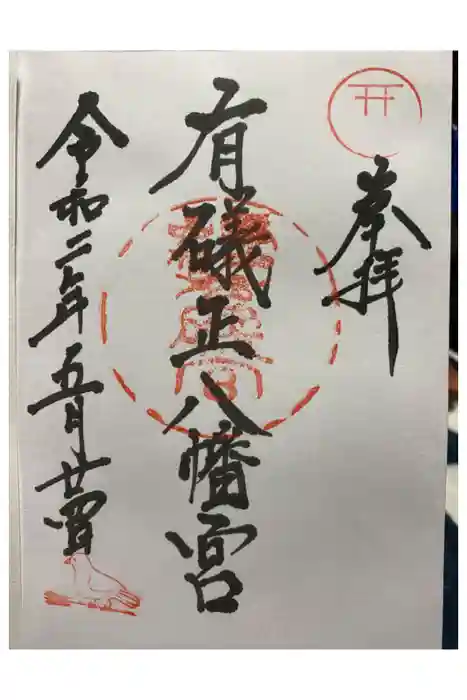 奉拝
有磯正八幡宮
令和二年五月廿四日